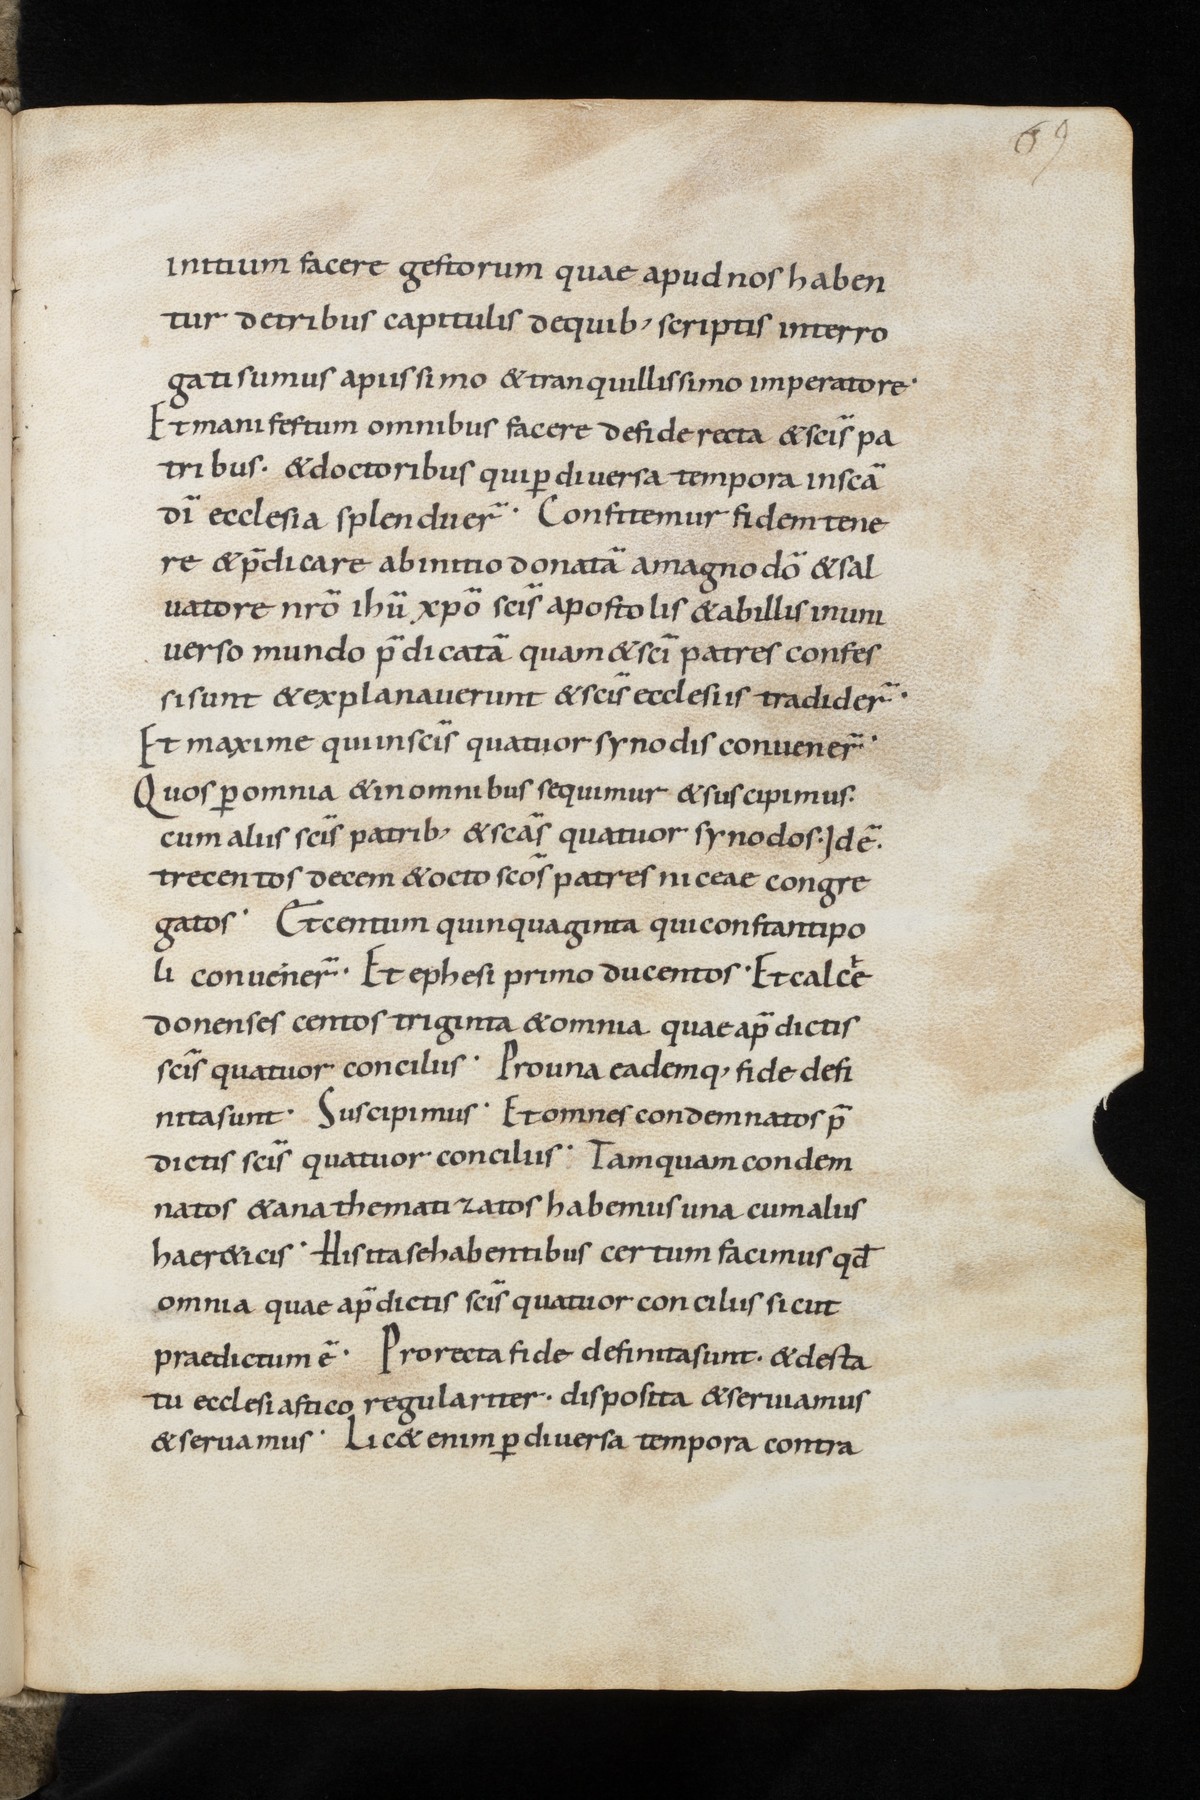 69
initium facere gestorum quae apud nos haben
tur de tribus capitulis de quib; scriptis interro
gati sumus a piissimo & tranquillissimo imperatore·
Et manifestum omnibus facere de fide recta & scīs pa
tribus· & doctoribus qui ꝑ diuersa tempora in scā
dī ecclesia splenduer̄· Confitemur fidem tene
re & p̄dicare ab initio donatā a magno dō & sal
uatore nrō ihū xpō scīs apostolis & ab illis in uni
uerso mundo p̄dicatā quam & scī patres confes
si sunt & explanauerunt & scīs ecclesiis tradider̄·
Et maxime qui in scīs quatuor synodis conuener̄·
Quos ꝑ omnia & in omnibus sequimur & suscipimus·
cum aliis scīs patrib; & scās quatuor synodos· Id ē·
trecentos decem & octo scōs patres niceae congre
gatos· Et centum quinquaginta qui constantipo
li conuener̄· Et ephesi primo ducentos· Et calce
donenses centos triginta & omnia quae a p̄dictis
scīs quatuor conciliis· Pro una eademq; fide defi
nita sunt· Suscipimus· Et omnes condemnatos p̄
dictis scīs quatuor conciliis· Tamquam condem
natos & anathematizatos habemus una cum aliis
haer&icis· His ita se habentibus certum facimus qđ
omnia quae a p̄dictis scīs quatuor conciliis sicut
praedictum ē· Pro recta fide definita sunt· & de sta
tu ecclesiastico regulariter· disposita & seruamus
& seruamus· Lic& enim ꝑ diuersa tempora contra